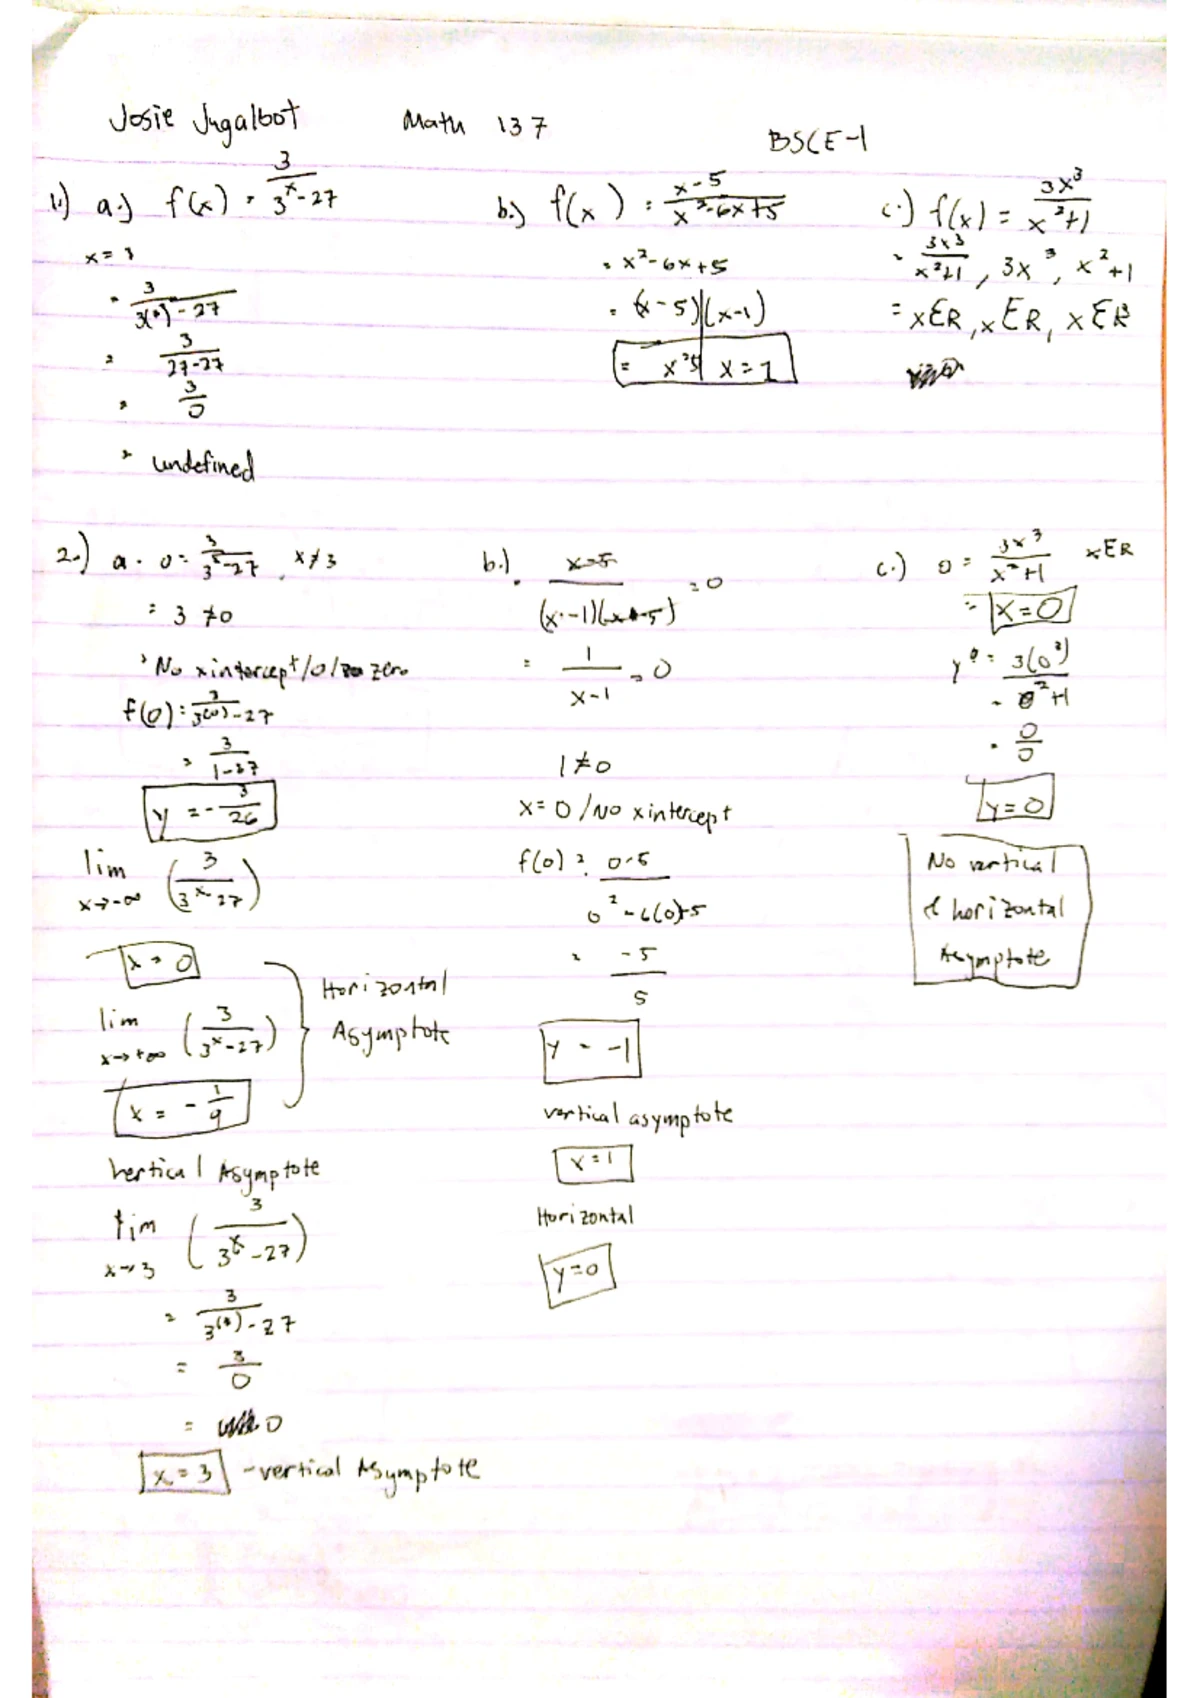 Josie Jugalbot Math 137 BSCE-1
1.) a.) f(x) = 3/(3^x - 27)
x = 3
= 3/(3(3) - 27)
= 3/(27-27)
= 3/0
= undefined
b.) f(x) = (x-5)/(x^2-6x+5)
= x^2-6x+5
= (x-5)(x-1)
= x=5 x=1
c.) f(x) = 3x^3/(x^2+1)
= 3x3/(x^2+1), 3x^3, x^2+1
= xER, xER, xER
2.) a. 0 = 3/(3^x-27), x≠3
= 3 ≠0
No xintercept/0/ zero
f(0) = 3/(3(0)-27)
= 3/(1-27)
y = - 3/26
lim x→-∞ (3/(3^x-27))
x = 0
lim x→+∞ (3/(3^x-27))
x = - 1/9
Horizontal
Asymptote
Vertical Asymptote
lim x→3 (3/(3^x-27))
= 3/(3(3)-27)
= 3/0
= 0
x = 3 -vertical Asymptote
b.) (x-5)/((x-1)(x-5)) = 0
= 1/(x-1) = 0
1≠0
x=0 /No xintercept
f(0) = (0-5)/(0^2-6(0)+5)
= -5/5
y = -1
vertical asymptote
x=1
Horizontal
y=0
c.) 0 = 3x^3/(x^2+1) xER
= x=0
y = 3(0^3)/(0^2+1)
= 0/0
y=0
No vertical
& horizontal
Asymptote